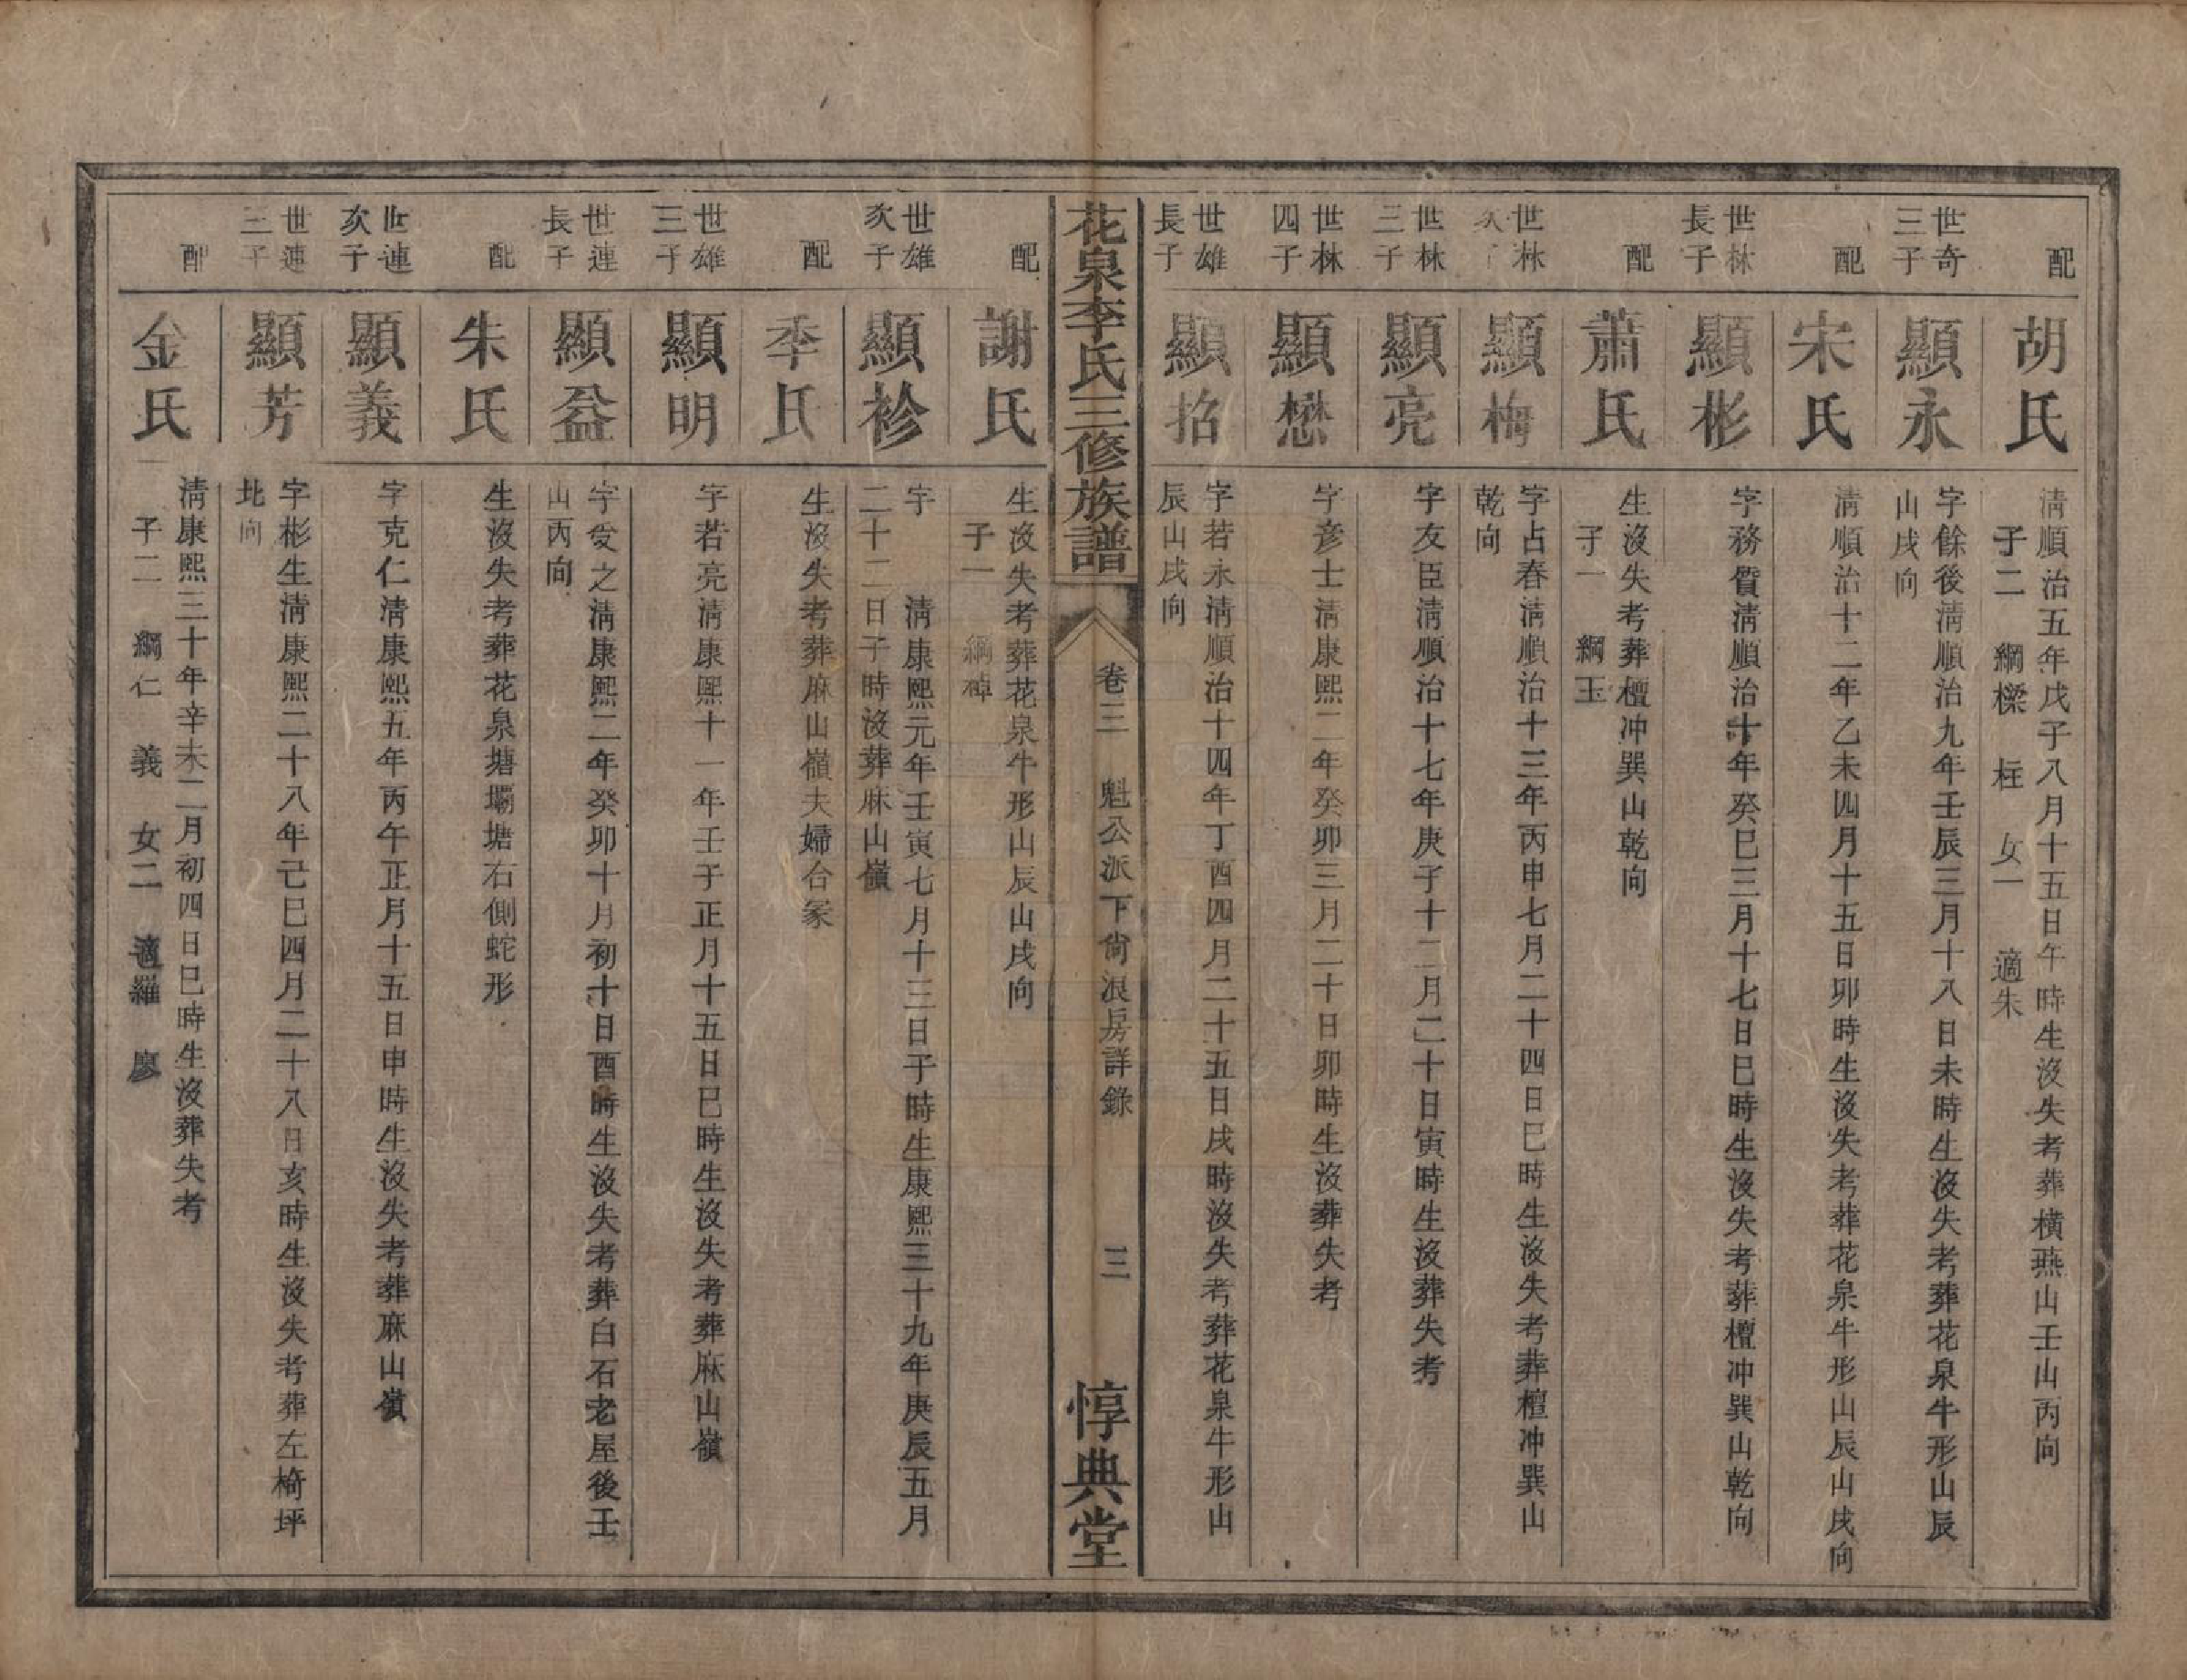 配
胡氏
清順治五年戊子八月十五日午時生沒失考葬橫燕山壬山丙向
子二 綱樑 柱 女一 適朱
世奇
三子
顯永
字餘後淸順治九年壬辰三月十八日未時生沒失考葬花泉牛形山辰
山戌向
配
宋氏
淸順治十二年乙未四月十五日卯時生沒失考葬花泉牛形山辰山戌向
世林
長子
顯彬
字務質淸順治十年癸巳三月十七日巳時生沒失考葬檀冲巽山乾向
配
蕭氏
生沒失考葬檀冲巽山乾向
子一 綱玉
世林
次子
顯梅
字占春淸順治十三年丙申七月二十四日巳時生沒失考葬檀冲巽山
乾向
世林
三子
顯亮
字友臣淸順治十七年庚子十二月二十日寅時生沒葬失考
世林
四子
顯懋
字彥士淸康熙二年癸卯三月二十日卯時生沒葬失考
世雄
長子
顯招
字若永淸順治十四年丁酉四月二十五日戌時沒失考葬花泉牛形山
辰山戌向
花泉李氏三修族譜
卷三 魁公派下尙浪房詳錄
三
惇典堂
配
謝氏
生沒失考葬花泉牛形山辰山戌向
子一 綱
世雄
次子
顯袗
字 淸康熙元年壬寅七月十三日子時生康熙三十九年庚辰五月
二十二日子時沒葬麻山嶺
配
李氏
生沒失考葬麻山嶺夫婦合冢
世雄
三子
顯明
字若亮淸康熙十一年壬子正月十五日巳時生沒失考葬麻山嶺
世連
長子
顯益
字爰之淸康熙二年癸卯十月初十日酉時生沒失考葬白石老屋後壬
山丙向
配
朱氏
生沒失考葬花泉塘壩塘右側蛇形
世連
次子
顯義
字克仁淸康熙五年丙午正月十五日申時生沒失考葬麻山嶺
世連
三子
顯芳
字彬生淸康熙二十八年己巳四月二十八日亥時生沒失考葬左椅坪
北向
配
金氏
淸康熙三十年辛未二月初四日巳時生沒葬失考
子二 綱仁 義 女二 適羅 廖